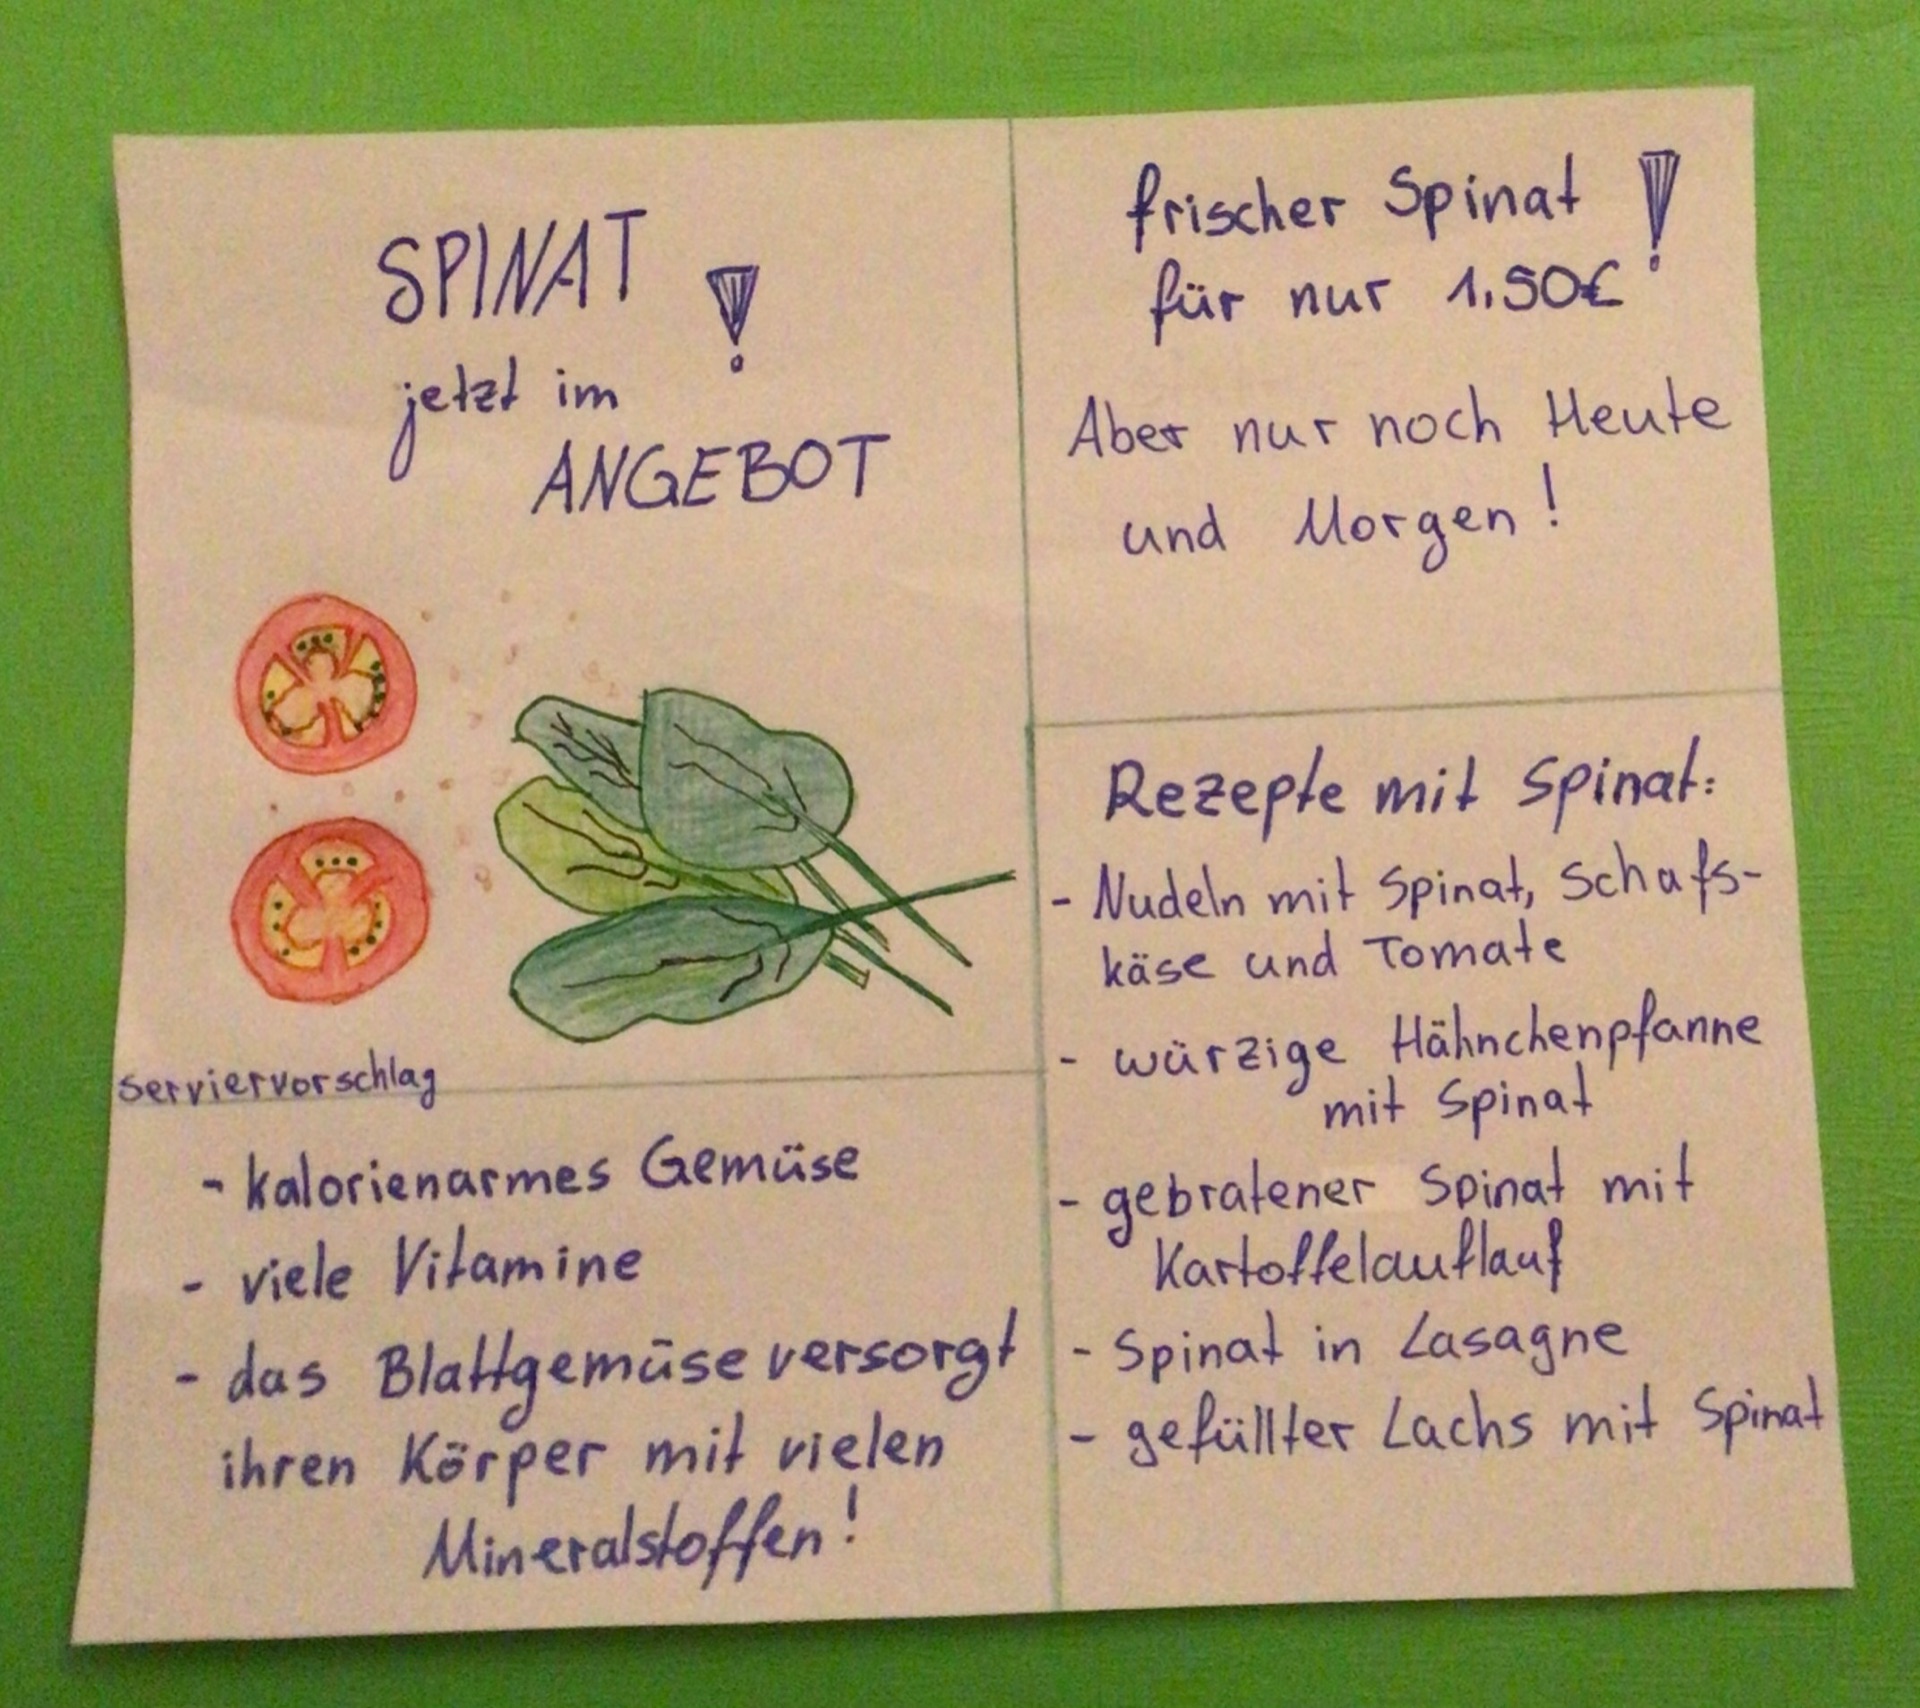 SPINAT !
jetzt im
ANGEBOT
serviervorschlag
frischer Spinat !
für nur 1.50€
Aber nur noch Heute
und Morgen!
- kalorienarmes Gemüse
- viele Vitamine
- das Blattgemüse versorgt
ihren Körper mit vielen
Mineralstoffen!
Rezepte mit Spinat:
- Nudeln mit Spinat, Schafs-
käse und Tomate
- würzige Hähnchenpfanne
mit Spinat
- gebratener Spinat mit
Kartoffelauflauf
- Spinat in Lasagne
- gefüllter Lachs mit Spinat